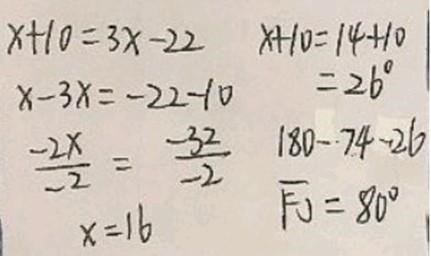 x+10=3x-22
x-3x=-22-10
-2x/-2 = -32/-2
x=16
x+10=14+10
=26°
180-74-26
FJ=80°